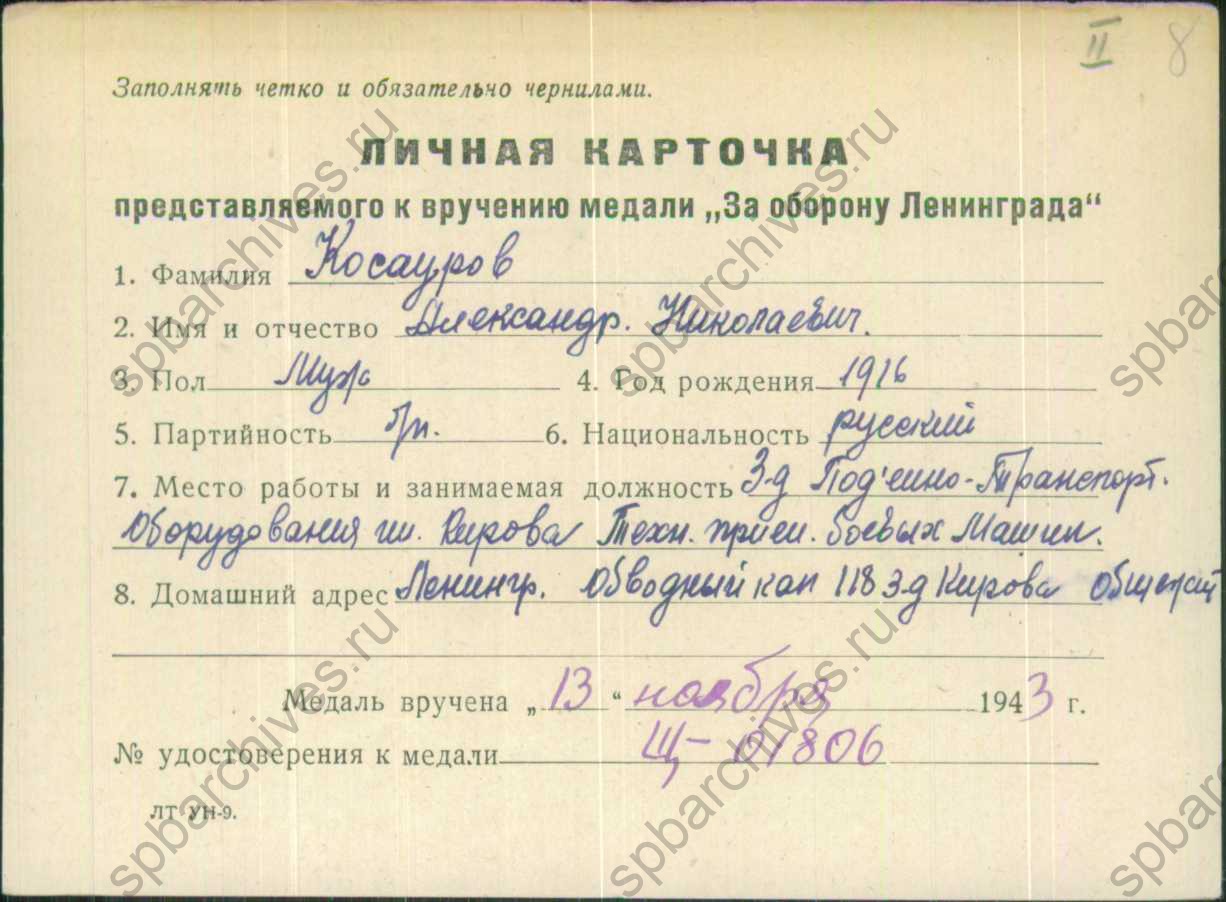 II 8
Заполнять четко и обязательно чернилами.
ЛИЧНАЯ КАРТОЧКА
представляемого к вручению медали „За оборону Ленинграда“
1. Фамилия Косауров
2. Имя и отчество Александр. Николаевич.
3. Пол Муж 4. Год рождения 1916
5. Партийность б/п. 6. Национальность русский
7. Место работы и занимаемая должность З-д Под'емно-Транспорт.
Оборудования им. Кирова Техн. прием. боевых Машин.
8. Домашний адрес Ленингр. Обводный кан 118 З-д Кирова Общежит
Медаль вручена „13“ ноября 1943 г.
№ удостоверения к медали Щ-01806
ЛТ УН-9.
spbarchives.ru